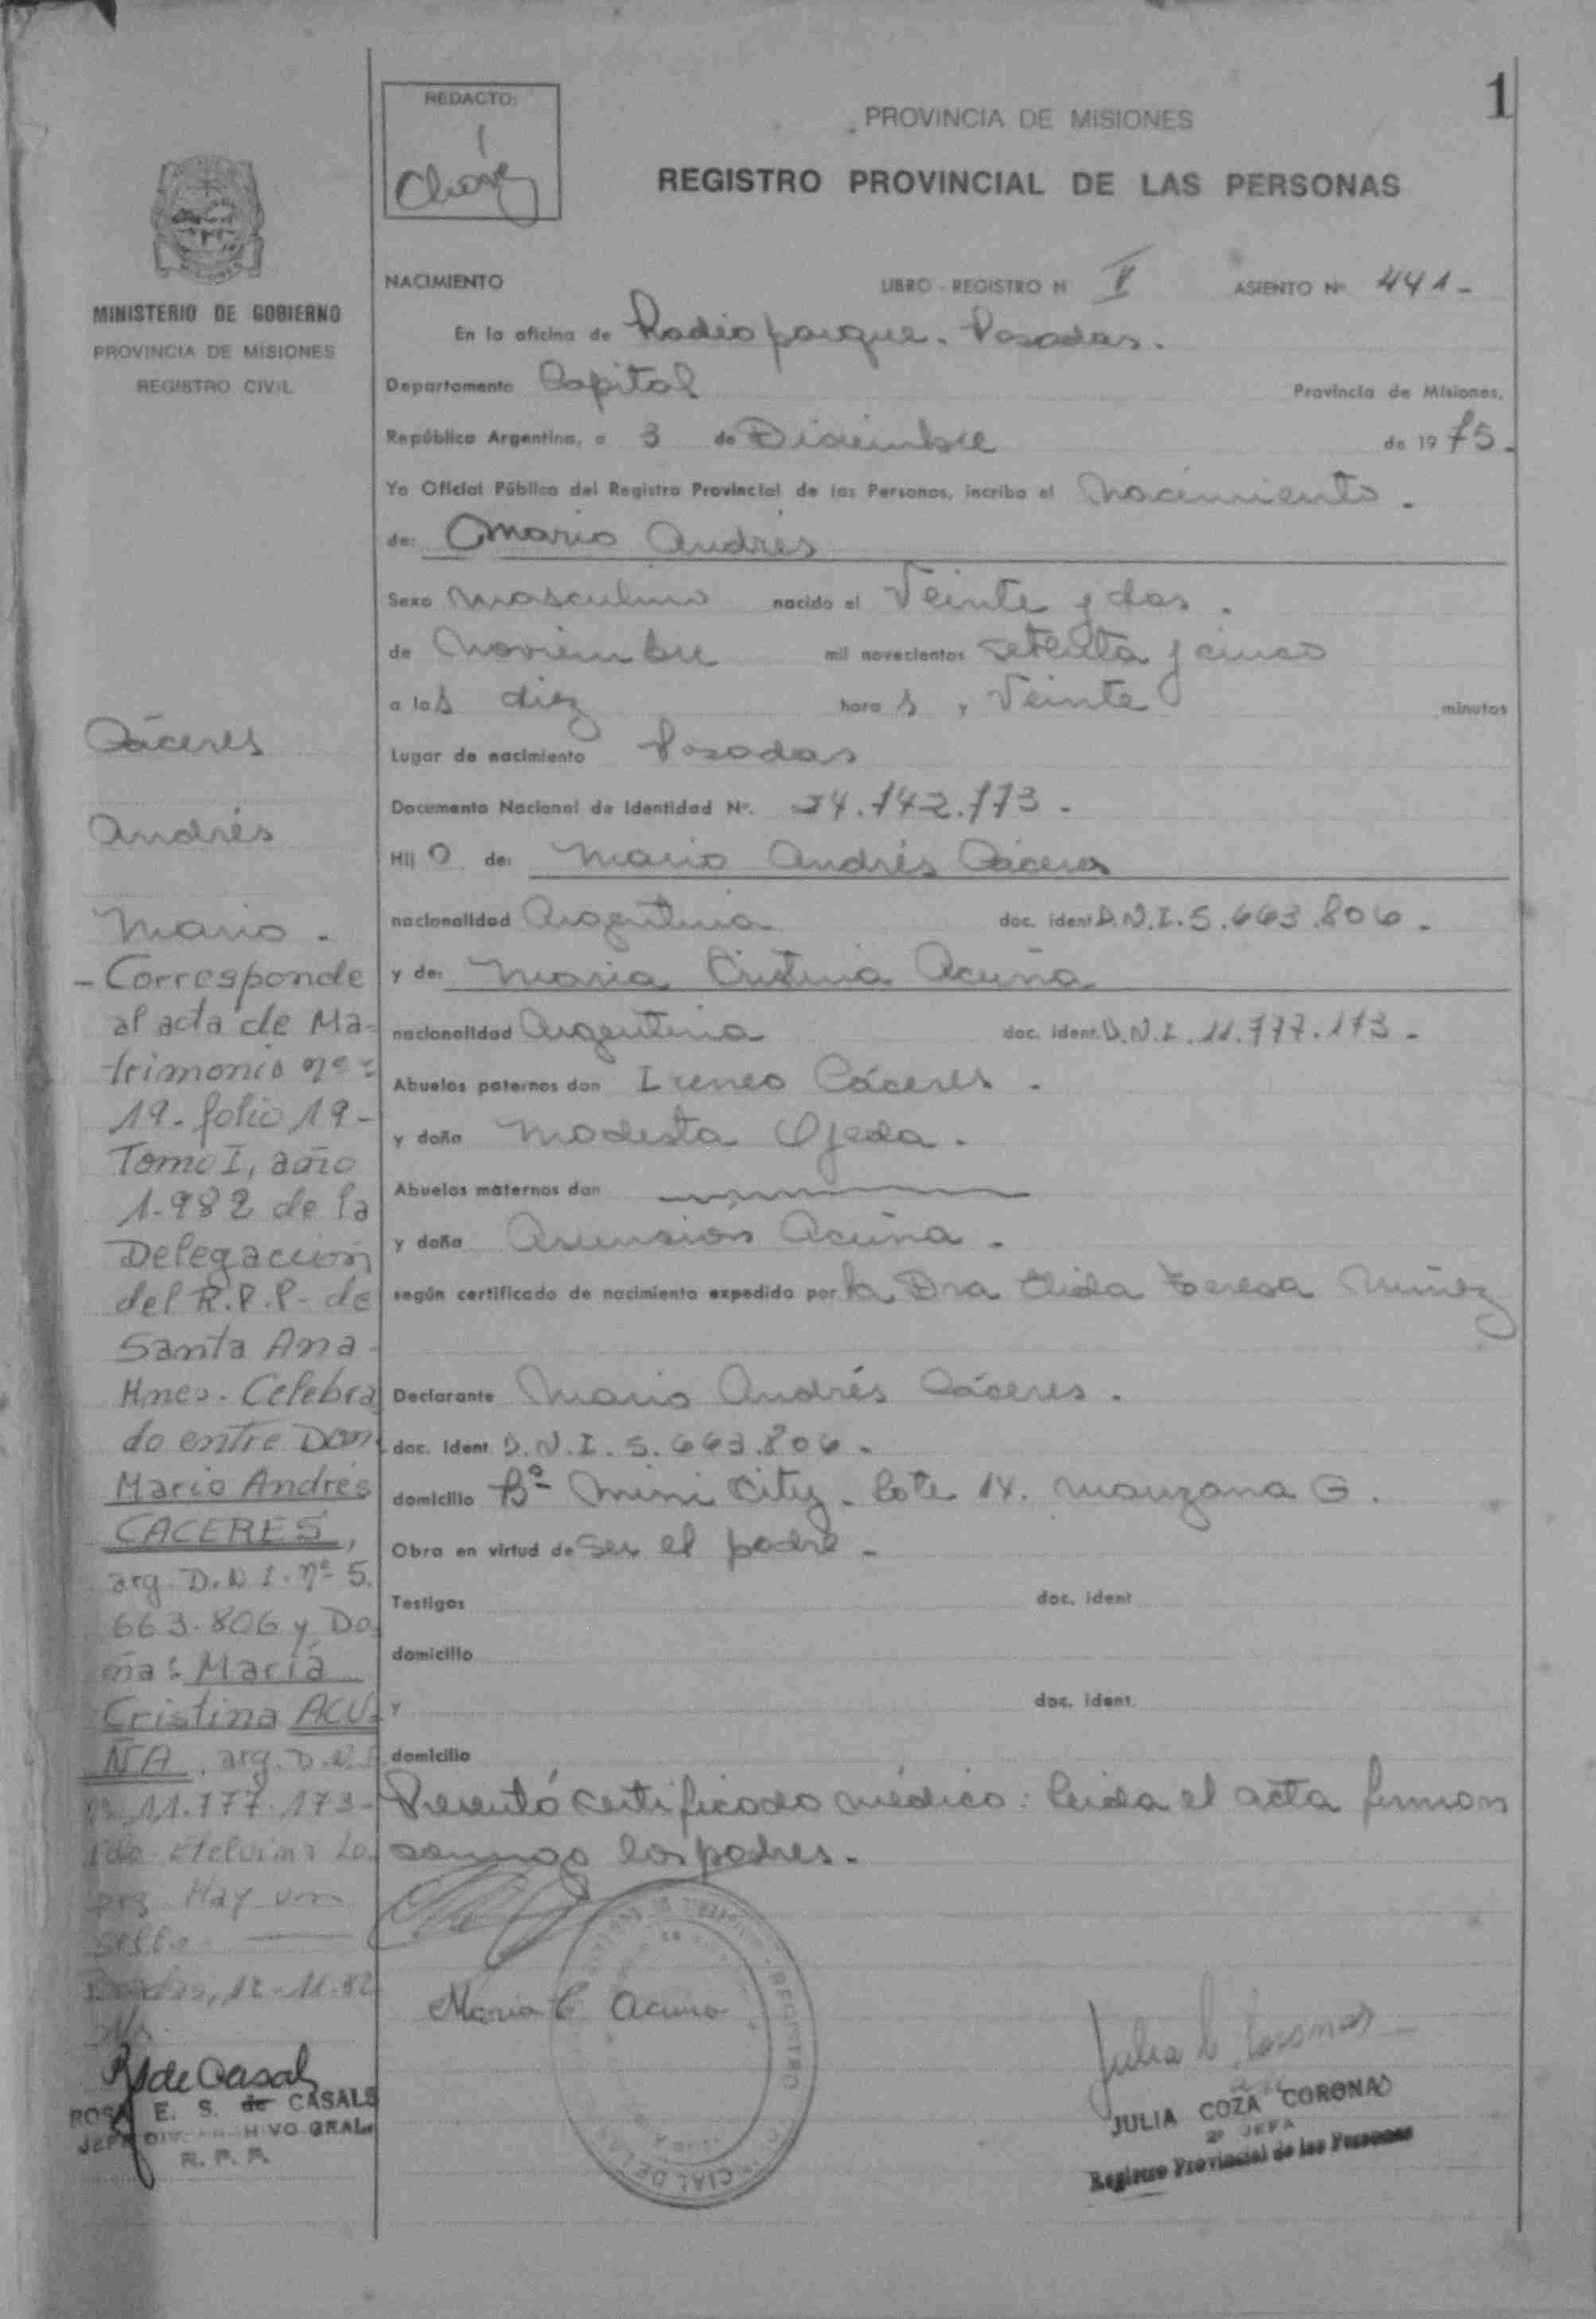 1
REDACTO:
PROVINCIA DE MISIONES
REGISTRO PROVINCIAL DE LAS PERSONAS
MINISTERIO DE GOBIERNO
PROVINCIA DE MISIONES
REGISTRO CIVIL
NACIMIENTO LIBRO - REGISTRO N V ASIENTO Nº 441-
En la oficina de Radioparque. Posadas.
Departamento Capital Provincia de Misiones,
República Argentina, a 3 de Diciembre de 1975.
Yo Oficial Público del Registro Provincial de las Personas, incribo el nacimiento.
de: Mario Andrés
Sexo masculino nacido el Veinte y dos.
de Noviembre mil novecientos setenta y cinco
a las diez horas y Veinte minutos
Lugar de nacimiento Posadas
Documento Nacional de Identidad Nº. 24.742.773.
Hijo de: Mario Andrés Cáceres
nacionalidad Argentina doc. ident D.N.I. 5.663.806.
y de: Maria Cristina Acuña
nacionalidad Argentina doc. ident. D.N.I. 11.777.173.
Abuelos paternos don Ireneo Cáceres.
y doña Modesta Ojeda.
Abuelos maternos don
y doña Asunsión Acuña.
según certificado de nacimiento expedido por la Dra Elida Teresa Nuñez
Declarante Mario Andrés Cáceres.
doc. ident. D.N.I. 5.663.806.
domicilio Bº Mini City. Lote 14. manzana G.
Obra en virtud de ser el padre.
Testigos doc. ident
domicilio
y doc. ident.
domicilio
Presentó certificado médico: leida el acta firman
conmigo los padres.
Maria C Acuña
JULIA COZA CORONAS
2º JEFA
Registro Provincial de las Personas
Cáceres
Andrés
Mario.
-Corresponde
al acta de Ma-
trimonio nº:
19- folio 19-
Tomo I, año
1.982 de la
Delegación
del R.P.P. de
Santa Ana-
Mnes. Celebra
do entre Don
Mario Andrés
CACERES,
arg. D.N.I. nº 5.
663.806 y Do
ña: Maria
Cristina ACU-
ÑA, arg. D.N.I.
11.777.173-
Etelvina Lo
pez Hay un
sello
Posadas, 12-11-82
R S de Casals
ROSA E. S. de CASALS
JEFE DIV. ARCHIVO GRAL.
R. P. P.